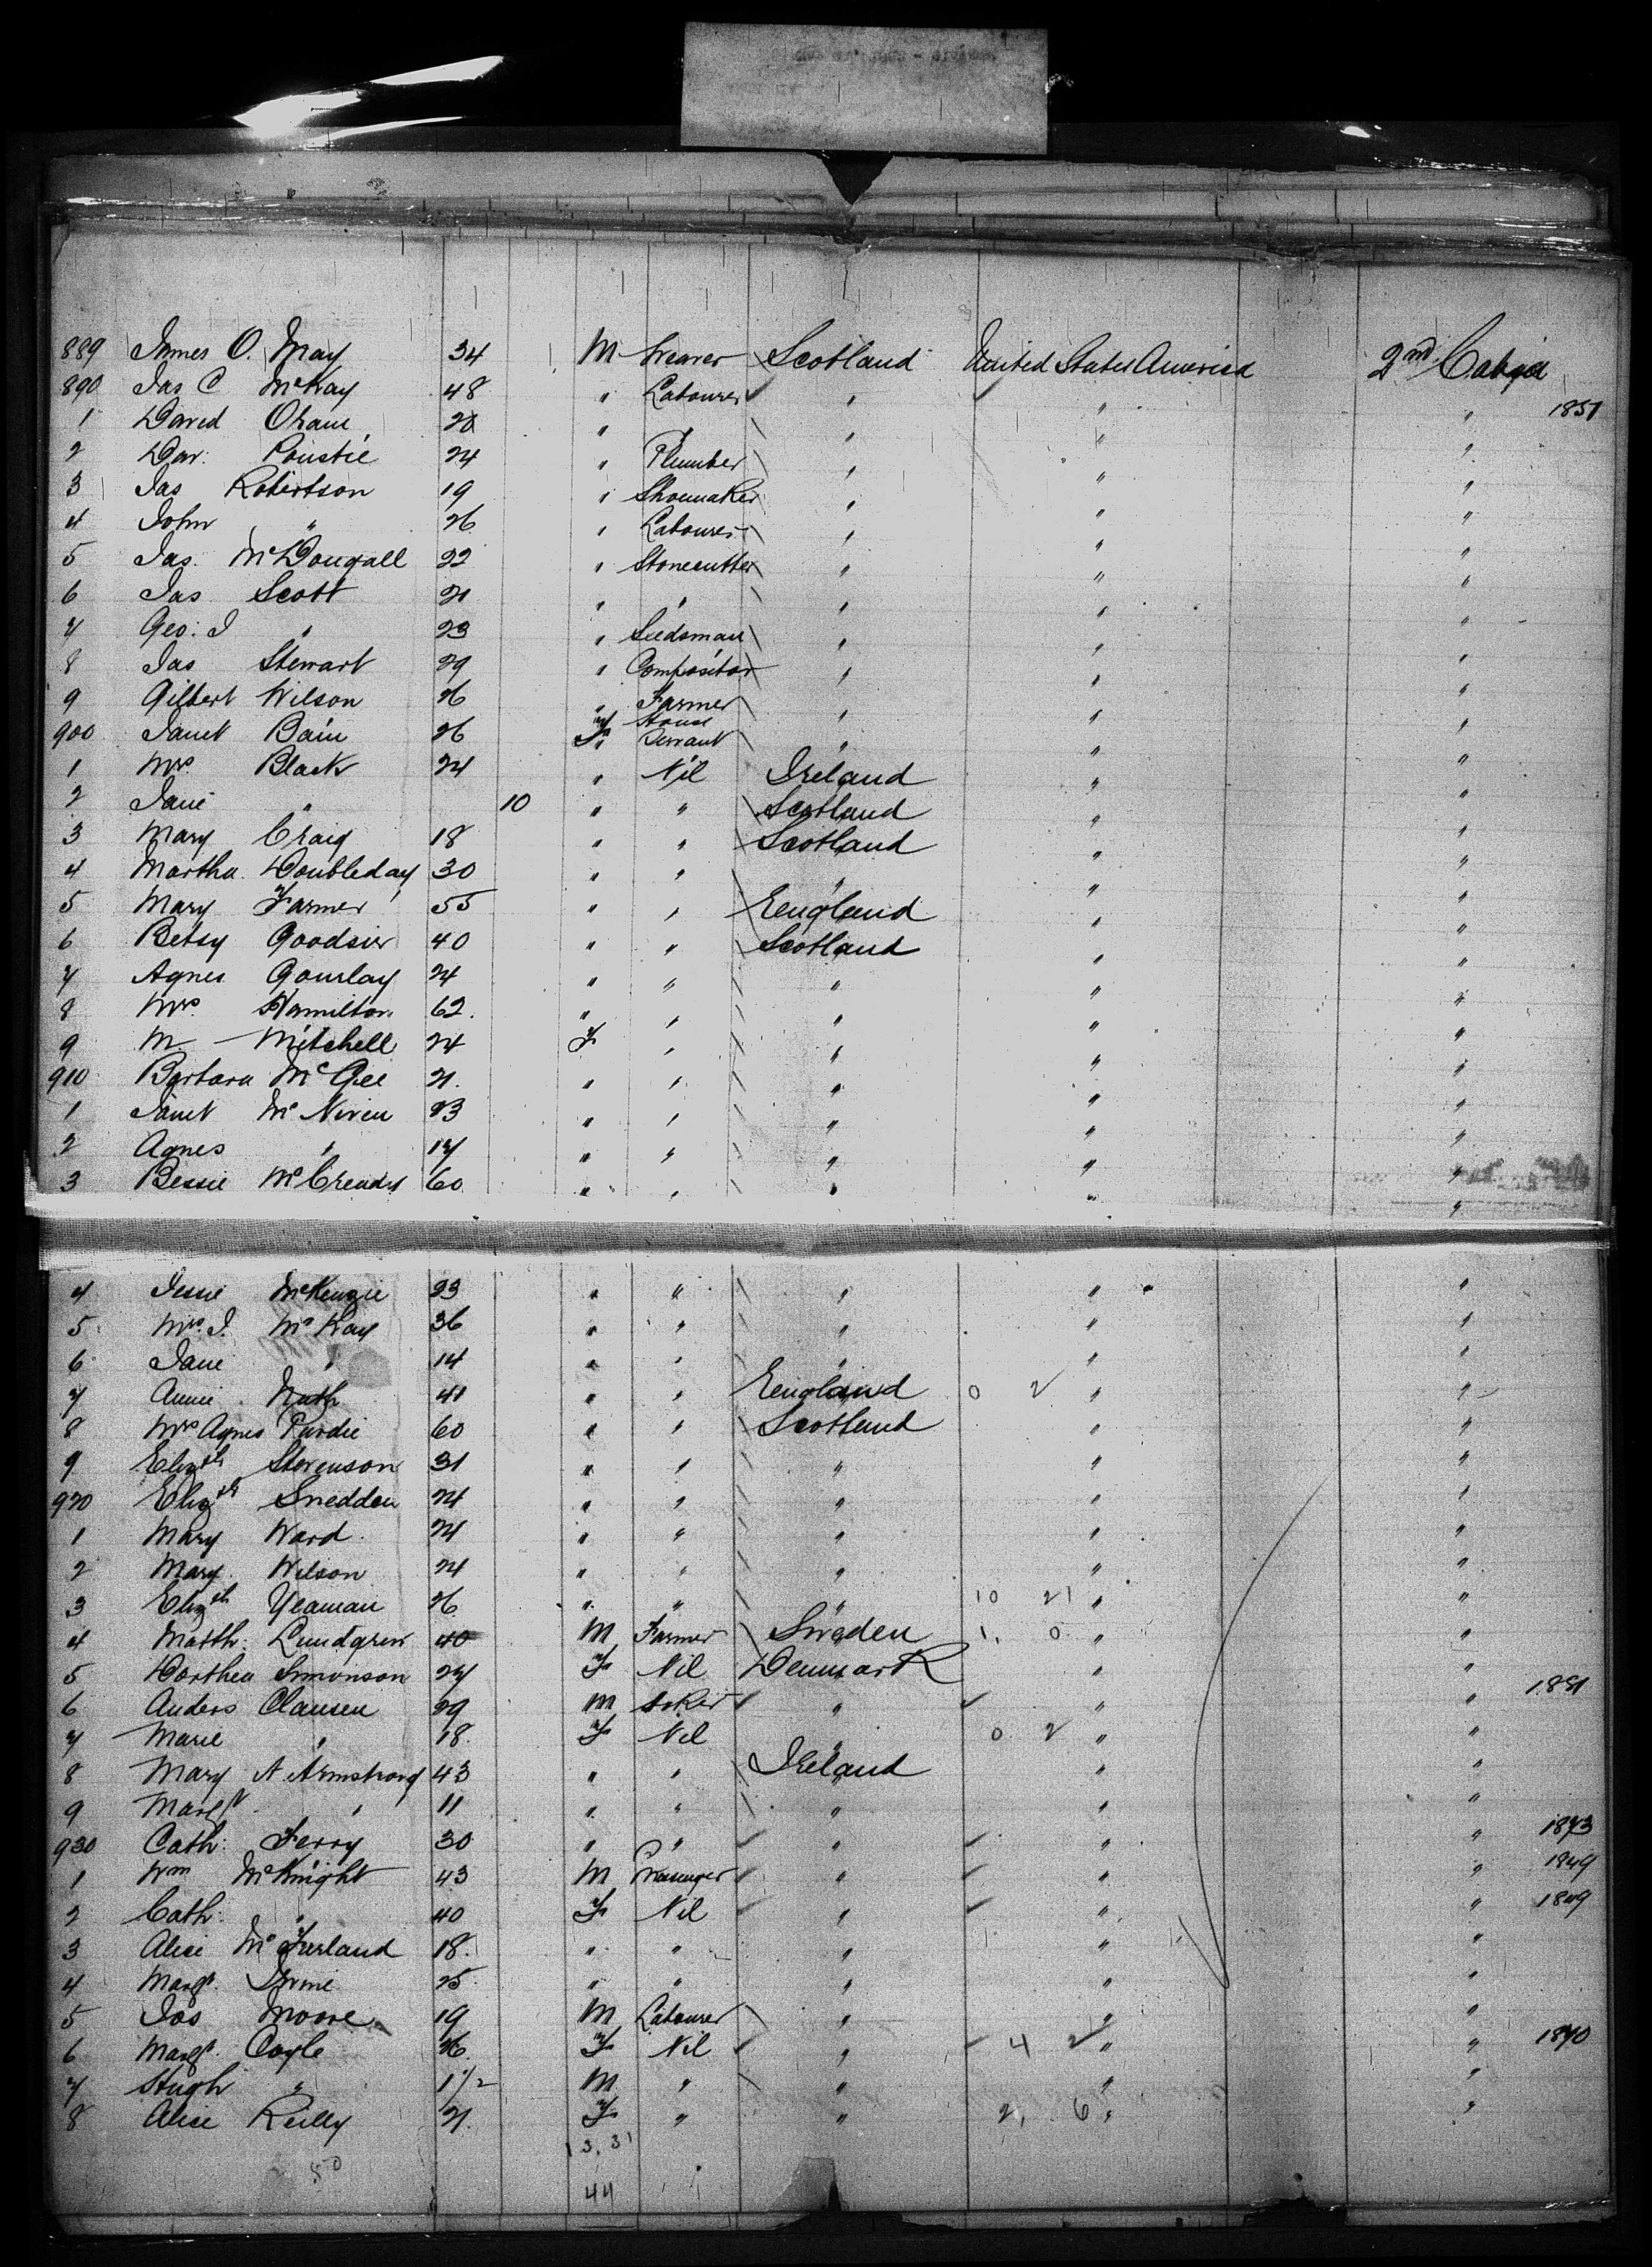 889 James O. May 34 M Weaver Scotland United States America 2nd Cabin
890 Jas C McKay 48 " Labourer " " " 1851
1 David Oram 28 " " " " "
2 Dav. Poustie 24 " Plumber " " "
3 Jas Robertson 19 " Shoemaker " " "
4 John " 26 " Labourer " " "
5 Jas. McDougall 22 " Stonecutter " " "
6 Jas Scott 21 " " " " "
7 Geo. J " 23 " Seedsman " " "
8 Jas Stewart 29 " Compositor " " "
9 Gilbert Wilson 26 " Farmer " " "
900 Janet Bain 26 F House Servant " " "
1 Mrs Black 24 " Nil Ireland " "
2 Jane " 10 " " Scotland " "
3 Mary Craig 18 " " Scotland " "
4 Martha Doubleday 30 " " " " "
5 Mary Farmer 55 " " England " "
6 Betsy Goodsir 40 " " Scotland " "
7 Agnes Gourlay 24 " " " " "
8 Mrs Hamilton 62 " " " " "
9 M. Mitchell 24 F " " " "
910 Barbara McGee 21 " " " " "
1 Janet McNiven 23 " " " " "
2 Agnes " 17 " " " " "
3 Bessie McCready 60 " " " " "
4 Jessie McKenzie 23 " " " " "
5 Mrs. J. McKay 36 " " " " "
6 Jane " 14 " " " " "
7 Annie 41 " " England 0 2 " "
8 Mrs Agnes Purdie 60 " " Scotland " "
9 Elizth Stevenson 31 " " " " "
920 Elizth Snedden 24 " " " " "
1 Mary Ward 24 " " " " "
2 Mary Wilson 24 " " " " "
3 Elizth Yeaman 26 " " " 10 21 " "
4 Matth. Lundgren 40 M Farmer Sweden 1. 0 " "
5 Dorthea Simonson 27 F Nil Denmark " "
6 Anders Clausen 29 M " " " 1881
7 Marie " 18 F Nil " 0 2 " "
8 Mary A Armstrong 43 " " Ireland " "
9 Margt " 11 " " " " "
930 Cath. Ferry 30 " " " " " 1873
1 Wm McKnight 43 M Messenger " " " 1849
2 Cath. " 40 F Nil " " " 1849
3 Alice McFarland 18 " " " " "
4 Margt. Irvine 25 " " " " "
5 Jas Moore 19 M Labourer " " "
6 Margt. Coyle 26 F Nil " 4 2 " " 1870
7 Hugh " 1 1/2 M " " " "
8 Alice Reilly 21 F " " 2, 6 " "
13, 31
50
44